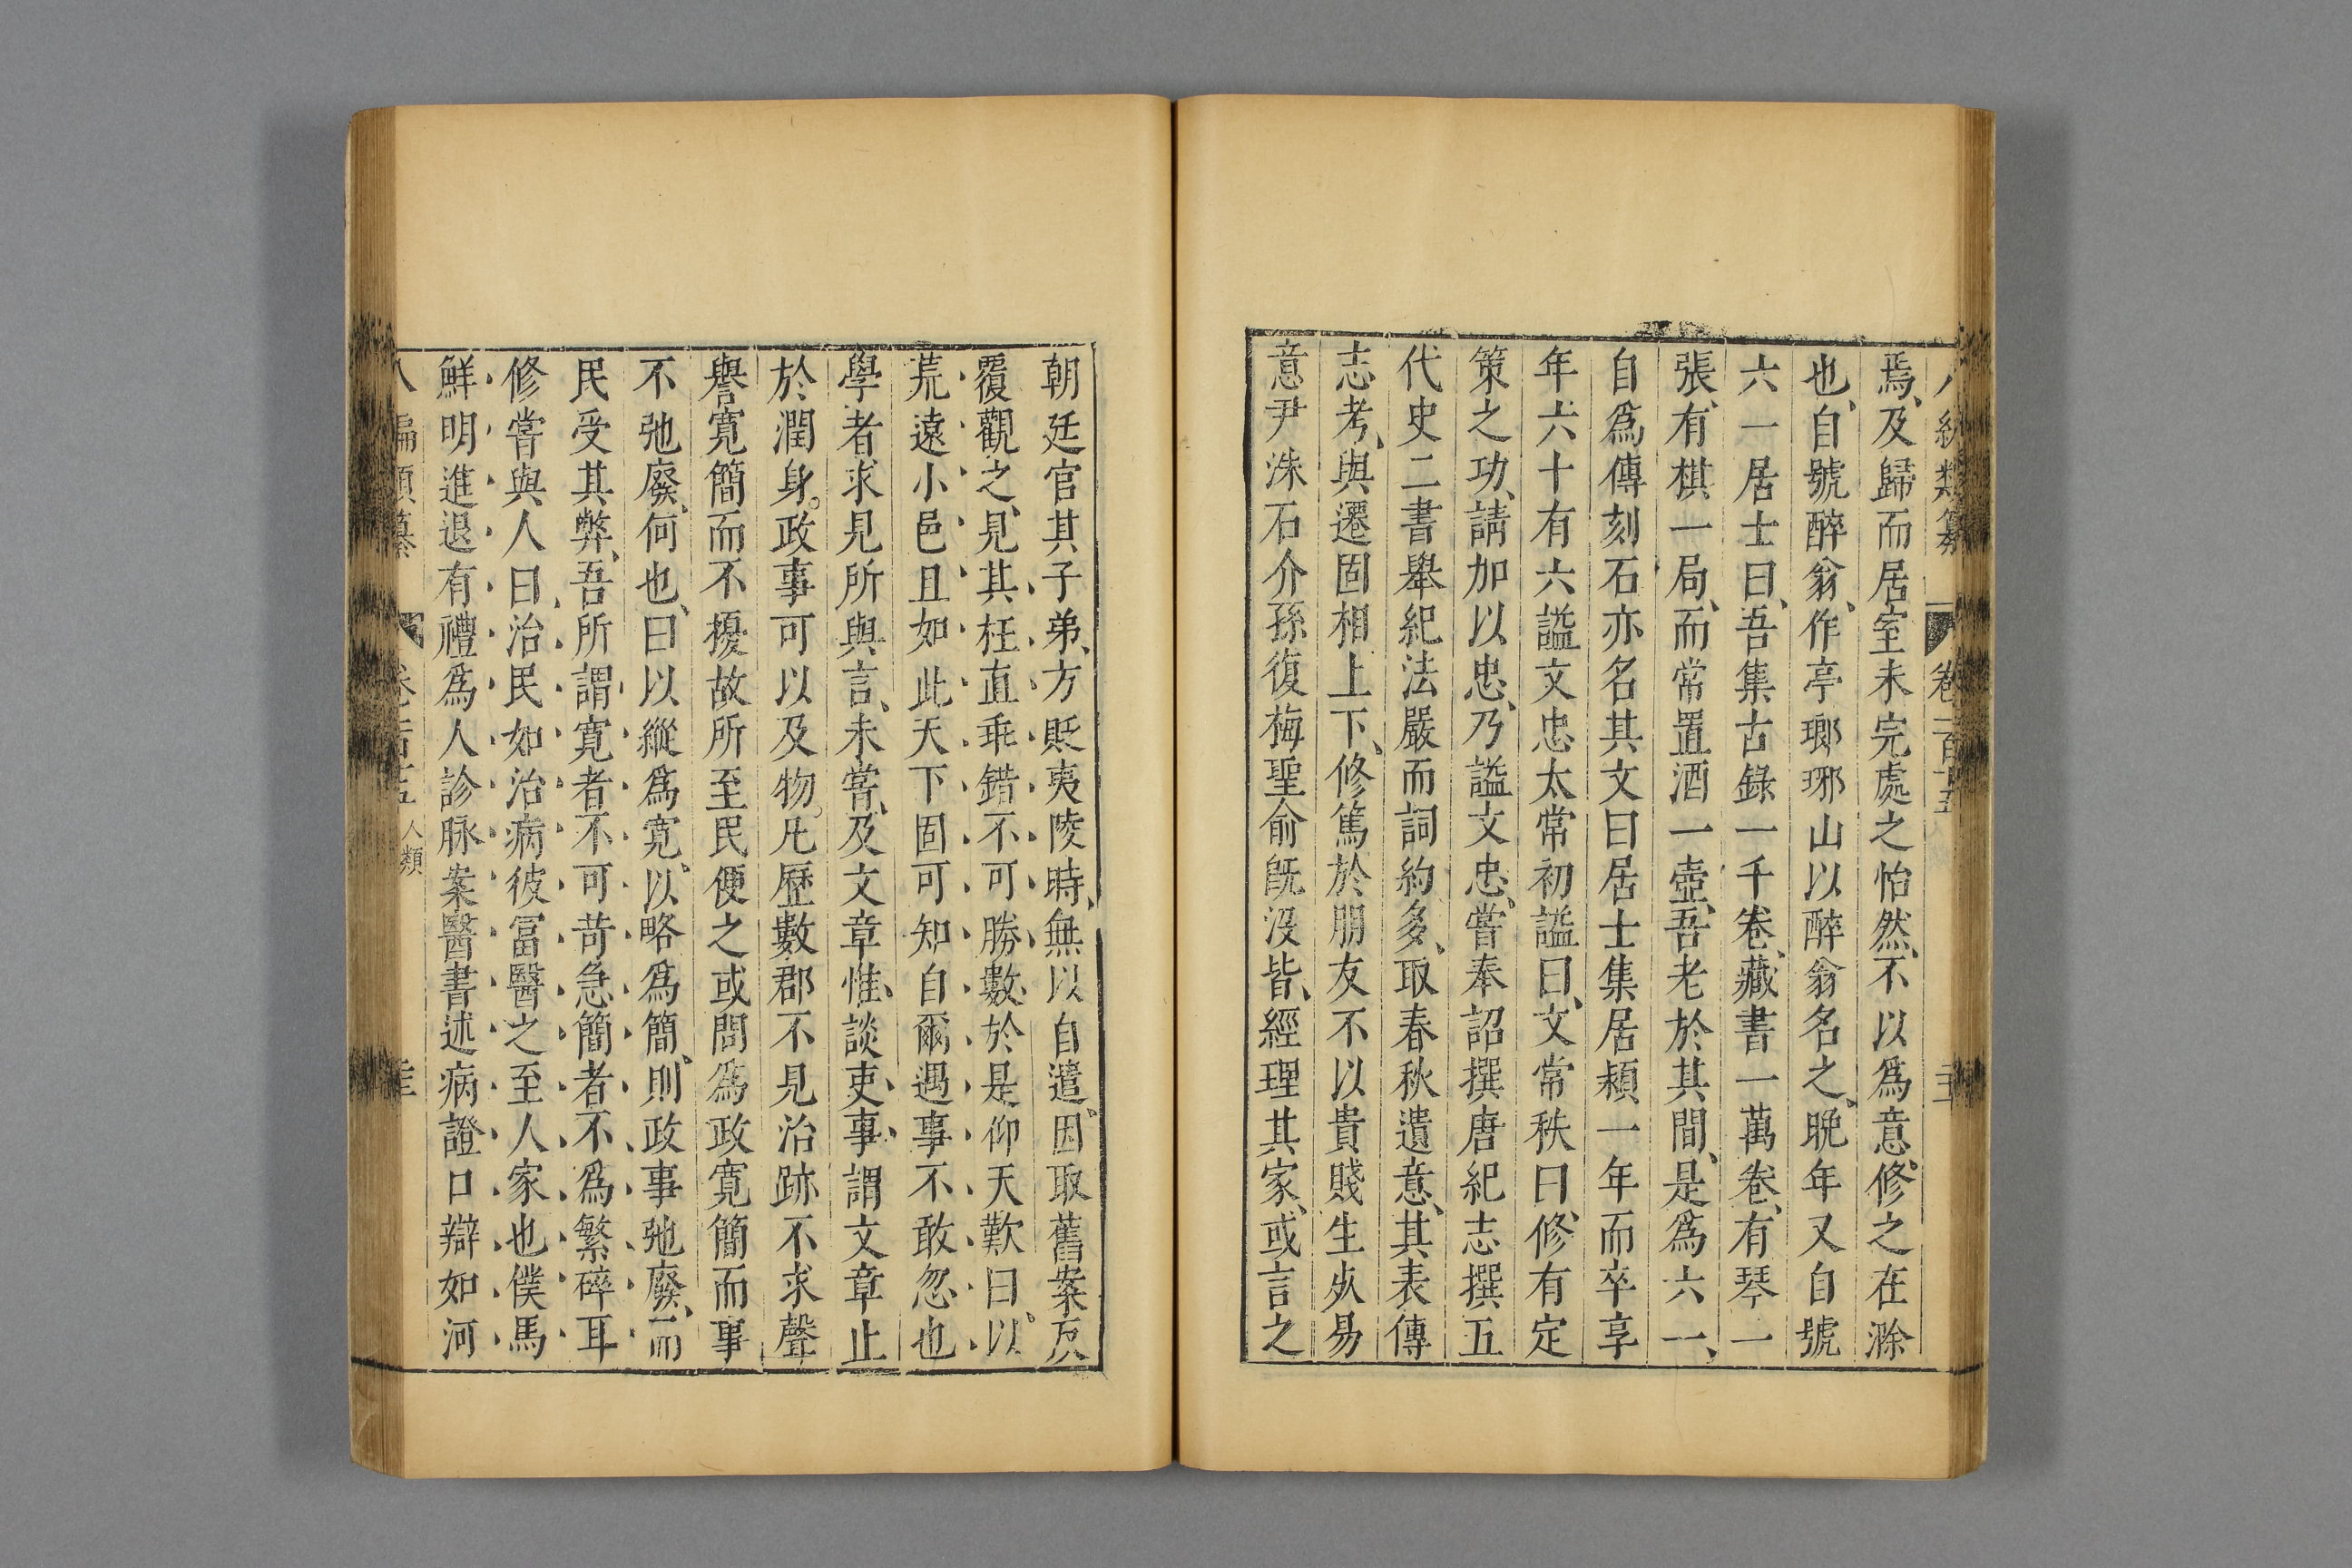 焉、及歸而居室未完處之怡然、不以爲意、修之在滁
也、自號醉翁、作亭瑯琊山以醉翁名之、晩年又自號
六一居士曰、吾集古錄一千卷、藏書一萬卷、有琴一
張、有棋一局、而常置酒一壺、吾老於其間、是爲六一、
自爲傳刻石亦名其文曰居士集居潁一年而卒享
年六十有六謚文忠太常初謚曰、文常秩曰、修有定
策之功、請加以忠、乃謚文忠、嘗奉詔撰唐紀志撰五
代史二書舉紀法嚴而詞約多、取春秋遺意、其表傳
志考、與遷固相上下、修篤於朋友不以貴賤生灰易
意尹洙石介孫復梅聖俞旣没皆、經理其家、或言之
朝廷官其子弟、方貶夷陵時、無以自遣、因取舊案反
覆觀之、見其枉直乖錯不可勝數、於是仰天歎曰。以
荒遠小邑且如此天下固可知自爾遇事不敢忽也
學者求見所與言、未嘗、及文章惟、談、吏、事、謂文章止
於潤身。政事可以及物。凡歷數郡不見治跡不求聲
譽寬簡而不擾故所至民便之或問爲政寬簡而事
不弛廢、何也、曰以縱爲寬、以略爲簡、則政事弛廢、而
民受其弊、吾所謂寬者不可苛急簡者不爲繁碎耳
修嘗與人曰治民如治病彼富醫之至人家也僕馬
鮮明進退有禮爲人診脉案醫書述病證口辯如河
人類